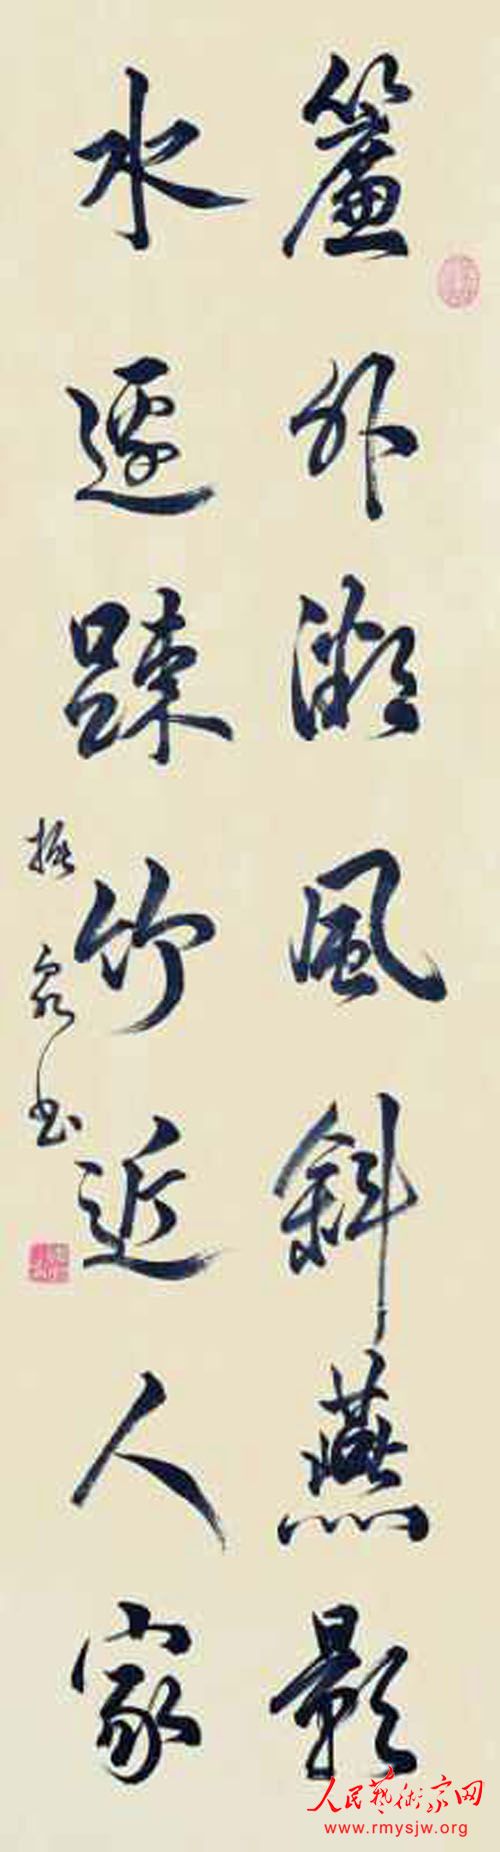 簾外微風斜燕影
水邊踈竹近人家
振泉书
人民藝術家网
www.rmysjw.org